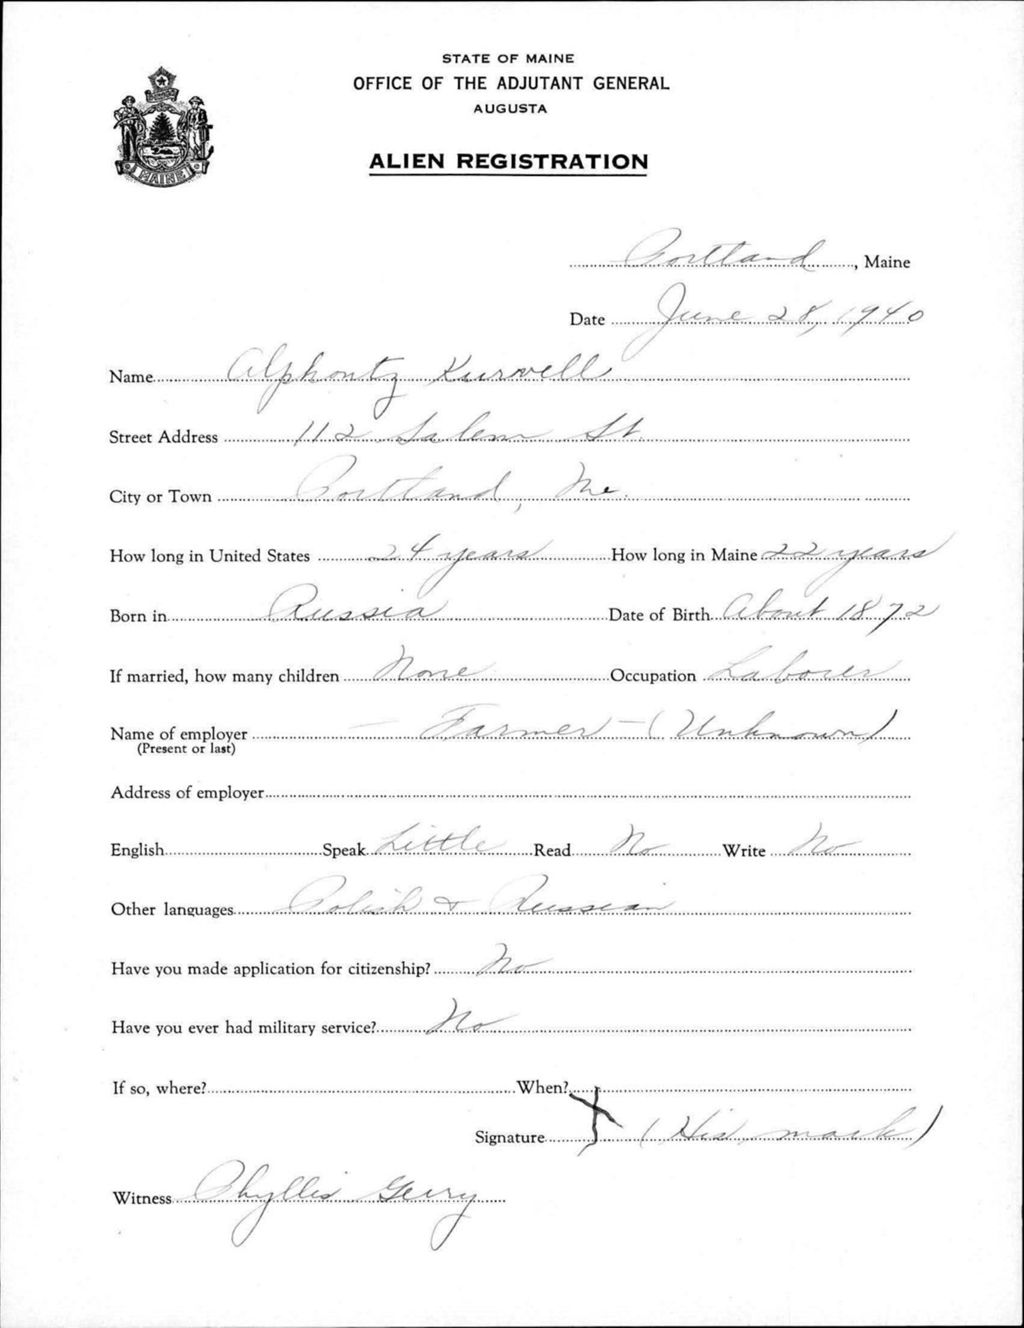 STATE OF MAINE
OFFICE OF THE ADJUTANT GENERAL
AUGUSTA
MAINE
ALIEN REGISTRATION
Portland, Maine
Date June 28, 1940
Name Alphontz Kurvell
Street Address 112 Salem St.
City or Town Portland, Me.
How long in United States 24 years How long in Maine 22 years
Born in Russia Date of Birth About 1872
If married, how many children None Occupation Laborer
Name of employer — Farmer — (Unknown)
(Present or last)
Address of employer
English Speak Little Read No Write No
Other languages Polish & Russian
Have you made application for citizenship? No
Have you ever had military service? No
If so, where? When?
Signature X (His mark)
Witness Phyllis Gerry